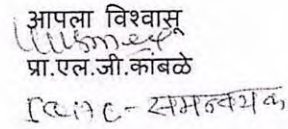 आपला विश्वासू
प्रा.एल.जी.कांबळे
समन्वयक